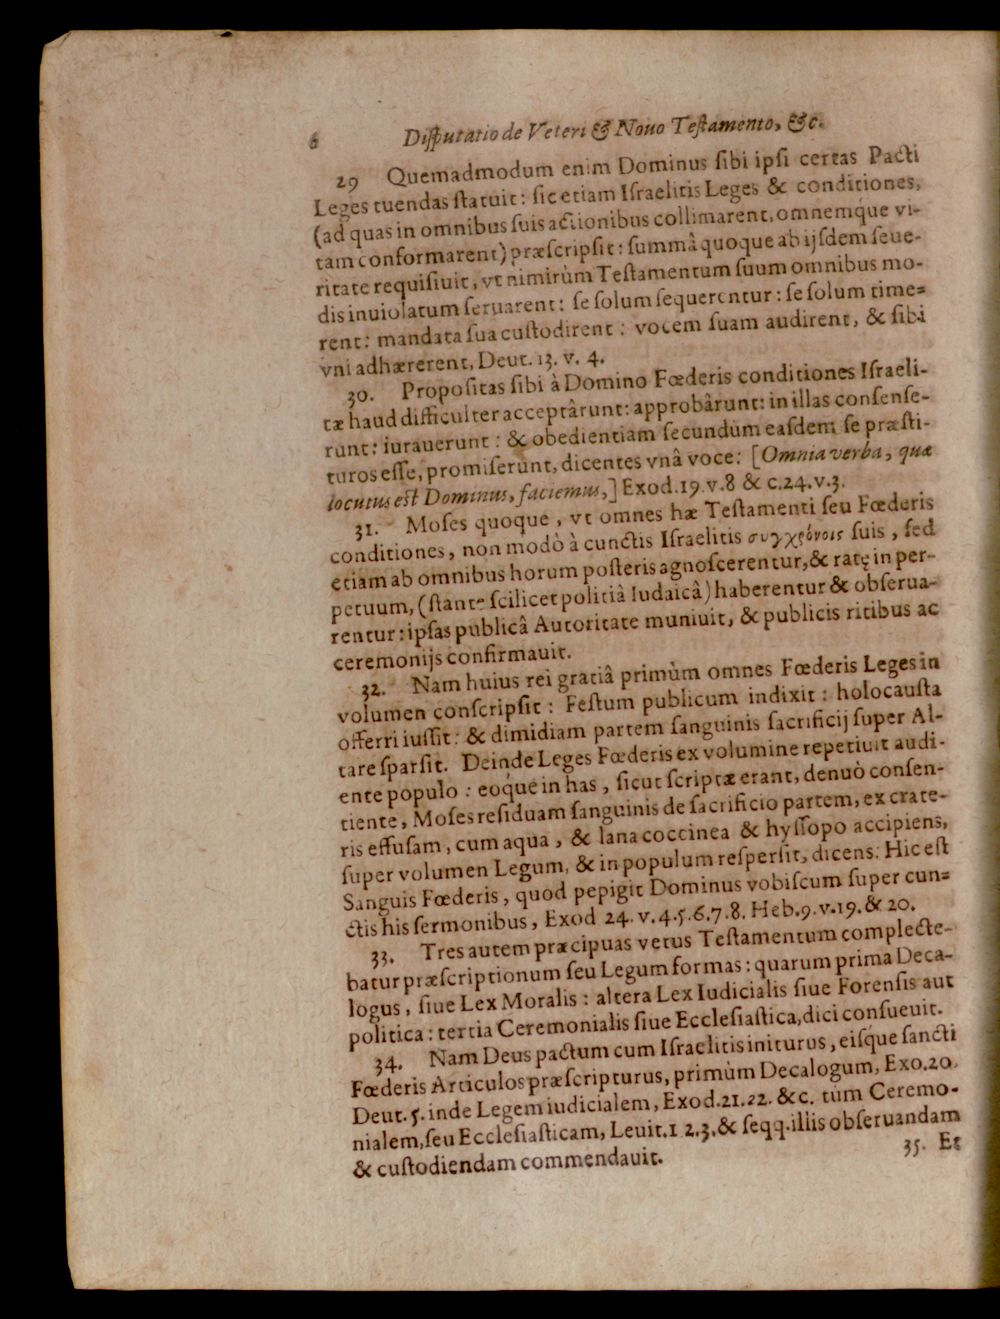 6 Disputatio de Veteri & Nouo Testamento, &c.
29 Quemadmodum enim Dominus sibi ipsi certas Pacti
Leges tuendas statuit: sic etiam Israelitis Leges & conditiones,
(ad quas in omnibus suis actionibus collimarent, omnemq́ue vi-
tam conformarent) præscripsit: summâ quoque ab ijsdem seue-
ritate requisiuit, vt nimirùm Testamentum suum omnibus mo-
dis inuiolatum seruarent: se solum sequerentur: se solum time=
rent: mandata sua custodirent: vocem suam audirent, & sibi
vni adhærerent, Deut. 13. v. 4.
30. Propositas sibi à Domino Fœderis conditiones Israeli-
tæ haud difficulter acceptârunt: approbârunt: in illas consense-
runt: iurauerunt: & obedientiam secundum easdem se præsti-
turos esse, promiserunt, dicentes vnâ voce: [Omnia verba, quæ
locutus est Dominus, faciemus,] Exod. 19. v. 8 & c. 24. v. 3.
31. Moses quoque, vt omnes hæ Testamenti seu Fœderis
conditiones, non modò à cunctis Israelitis συγχρόνοις suis, sed
etiam ab omnibus horum posteris agnoscerentur, & ratę in per-
petuum, (stante scilicet politiâ Iudaicâ) haberentur & obserua-
rentur: ipsas publicâ Autoritate muniuit, & publicis ritibus ac
ceremonijs confirmauit.
32. Nam huius rei gratiâ primùm omnes Fœderis Leges in
volumen conscripsit: Festum publicum indixit: holocausta
offerri iussit: & dimidiam partem sanguinis sacrificij super Al-
tare sparsit. Deinde Leges Fœderis ex volumine repetiuit audi-
ente populo: eoq́ue in has, sicut scriptæ erant, denuò consen-
tiente, Moses residuam sanguinis de sacrificio partem, ex crate-
ris effusam, cum aqua, & lana coccinea & hyssopo accipiens,
super volumen Legum, & in populum respersit, dicens: Hic est
Sanguis Fœderis, quod pepigit Dominus vobiscum super cun=
ctis his sermonibus, Exod 24. v. 4. 5. 6. 7. 8. Heb. 9. v. 19. & 20.
33. Tres autem præcipuas vetus Testamentum complecte-
batur præscriptionum seu Legum formas: quarum prima Deca-
logus, siue Lex Moralis: altera Lex Iudicialis siue Forensis aut
politica: tertia Ceremonialis siue Ecclesiastica, dici consueuit.
34. Nam Deus pactum cum Israelitis initurus, eisq́ue sancti
Fœderis Articulos præscripturus, primùm Decalogum, Exo. 20.
Deut. 5. inde Legem iudicialem, Exod. 21. 22. &c. tùm Ceremo-
nialem, seu Ecclesiasticam, Leuit. 1 2. 3. & seqq. illis obseruandam
& custodiendam commendauit.
35. Et